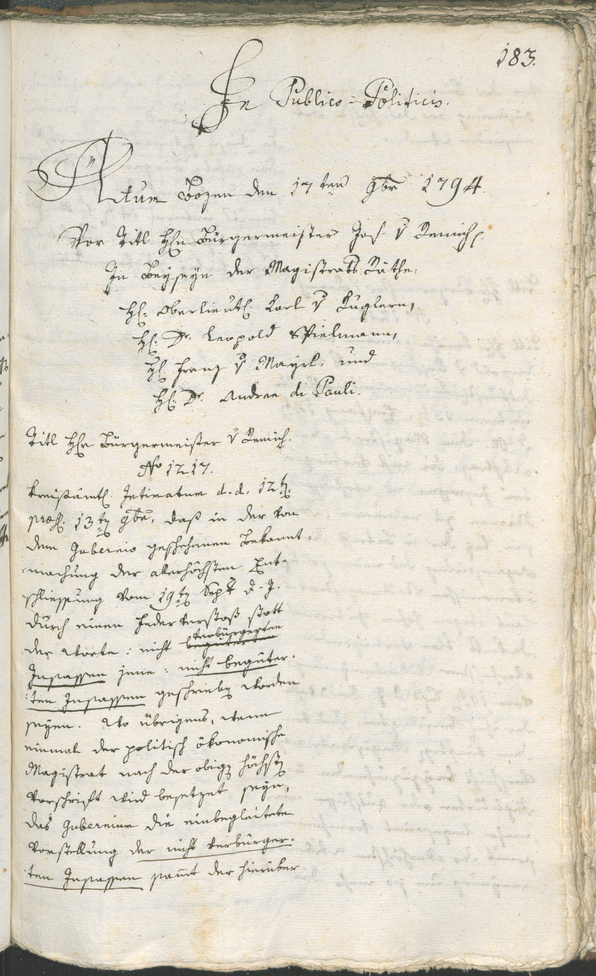 183.
In Publico-Politicis.
Actum Bozen den 17ten 9br 1794.
Vor Titl Hrn Bürgermeister Jos. v
In Beyseyn der Magistrats Räthe,
H: Oberlieut: Karl v Kuglern,
H: Dr. Leopold Spielmann,
H: Franz v Mayrl. und
H: Dr. Andree di Pauli.
Titl Hrn Bürgermeister v
No 1217.
Kreisämtl. Intimatum d. d. 12t.
pres. 13ty 9br, daß in der von
dem Gubernio geschehenen Bekannt-
machung der allerhöchsten Ent-
schliessung vom 19ty Sept d. J.
durch einen Federverstoß statt
der Worte: nicht verbürgerten
Insassen jene: nicht begüter-
ten Insassen geschrieby worden
seyen. Wo übrigens, wenn
einmal der politisch ökonomische
Magistrat nach der obigy höchsty
Vorschrift wird besetzet seyn,
das Gubernium die einbegleitete
Vorstellung der nicht verbürger-
ten Insassen samt der hierüber